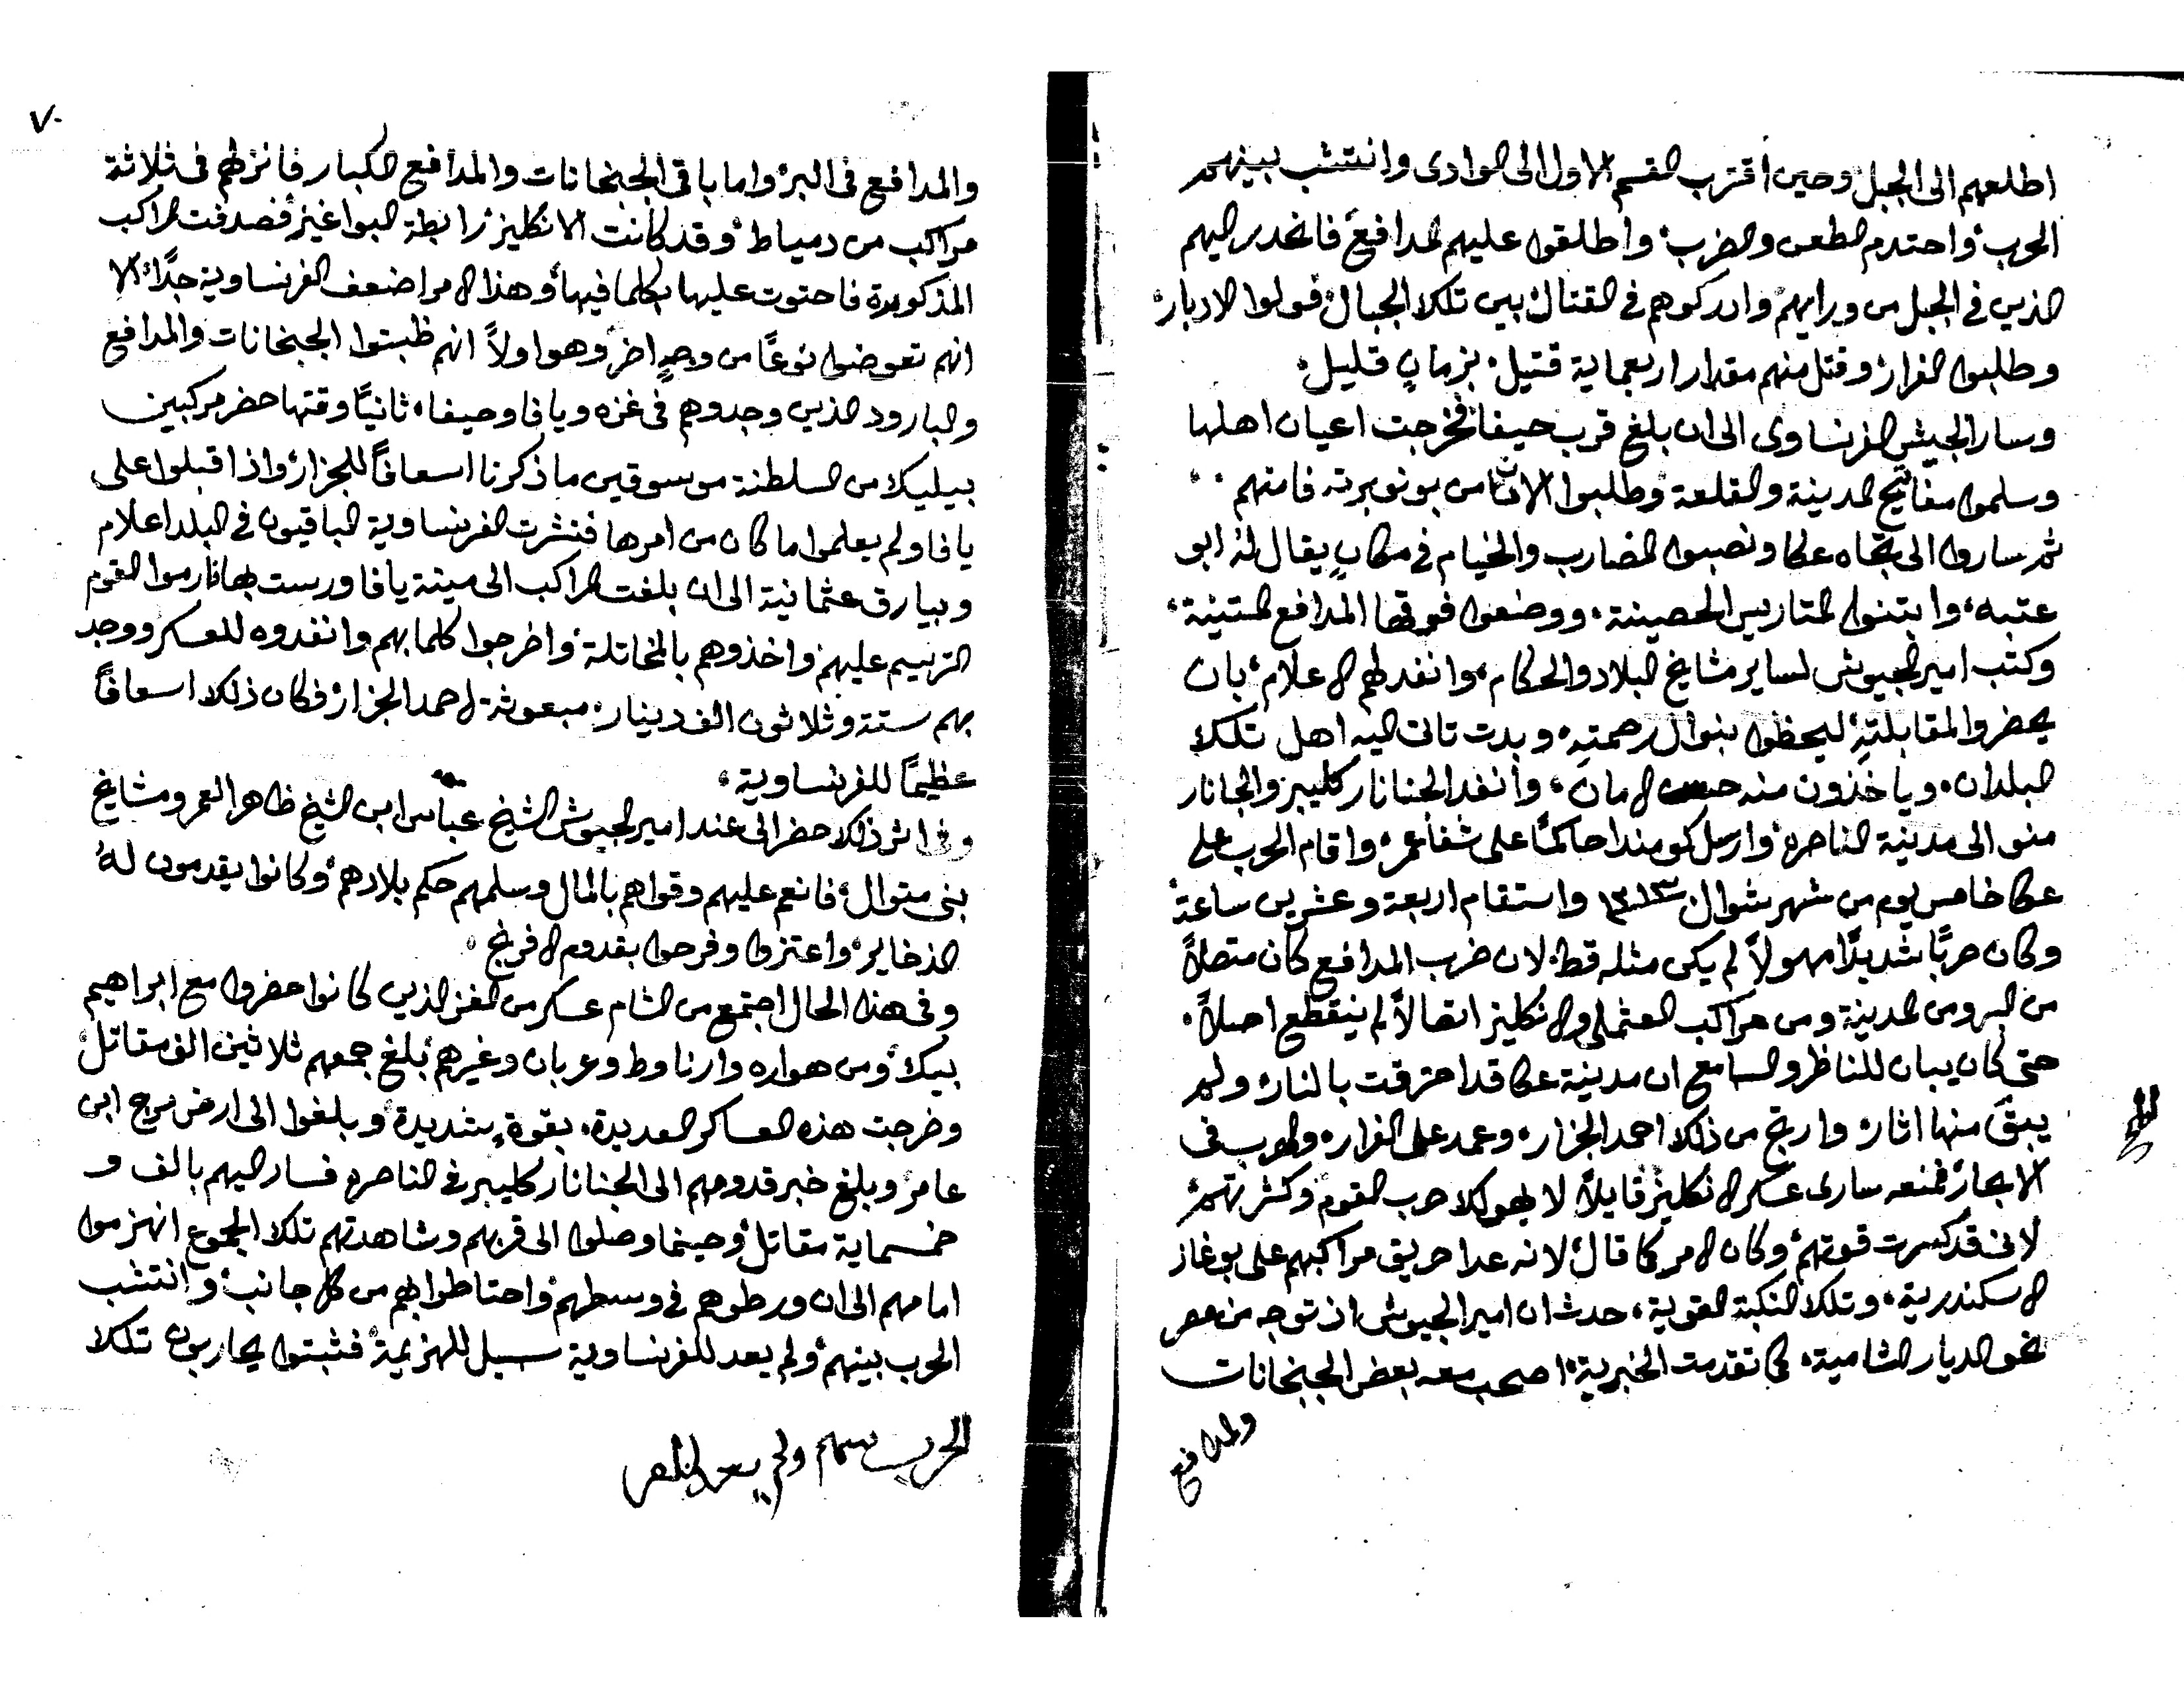 اطلعهم الى الجبل وحين اقترب القسم الاول الى الوادى وانتشب بينهم
الحرب واحتدم الطعن والضرب واطلقوا عليهم المدافع فانحدر اليهم
الذين في الجبل من ورايهم وادركوهم في القتال بين تلك الجبال فولوا الادبار
وطلبوا الفرار وقتل منهم مقدار اربعماية قتيل بزمانٍ قليل
وسار الجيش الفرنساوى الى ان بلغ قرب حيفا فخرجت اعيان اهلها
وسلموا مفاتيح المدينة والقلعة وطلبوا الامان من بونوبرته فامنهم
ثم ساروا الى تجاه عكا ونصبوا المضارب والخيام في مكانٍ يقال له ابو
عتبه وابتنوا المتاريس الحصينة ووضعوا فوقها المدافع المتينة
وكتب امير الجيوش لساير مشايخ البلاد والحكام وانفد لهم الاعلام بان
يحضروا لمقابلته ليحظوا بنوال رحمته وبدت تاتى اليه اهل تلك
البلدان وياخذون منه الامان وانفد الجنانار كليبر والجانار
منو الى مدينة الناصره وارسل كومندا حاكمًا على شفاعمر واقام الحرب على
عكا خامس يوم من شهر شوال سنة ١٢١٣ واستقام اربعة وعشرين ساعة
وكان حربًا شديدًا مهولاً لم يكن مثله قط لان ضرب المدافع كان متصلاً
من البر ومن المدينة ومن مراكب العثملى والانكليز اتصالاً لم ينقطع اصلاً
حتى كان يبان للناظر والسامع ان مدينة عكا قد احترقت بالنار ولم
يبقَ منها اثار وارتج من ذلك احمد الجزار وعمد على الفرار والهرب فى
الابحار فمنعه سارى عسكر الانكليز قايلاً لا يهولك حرب القوم وكثرتهم
لانى قد كسرت قوتهم وكان الامر كما قال لانه عدا حريق مراكبهم على بوغاز
الاسكندرية وتلك النكبة القوية حدث ان امير الجيوش اذ توجه من مصر
نحو الديار الشامية كما تقدمت الخبرية اصحب معه بعض الجبخانات
والمدافع
٧٠
والمدافع فى البر واما باقى الجبخانات والمدافع الكبار فانزلهم فى ثلاثة
مراكب من دمياط وقد كانت الانكليز رابطة البواغيز فصدفت المراكب
المذكورة فاحتوت عليها بكلما فيها وهذا الامر اضعف الفرنساوية جدًّا الا
انهم تعوضوا نوعًا من وجهٍ اخر وهو اولاً انهم ظبتوا الجبخانات والمدافع
والبارود الذين وجدوهم فى غزه ويافا وحيفا ثانيًا وقتها حضر مركبين
بيليك من السلطنة موسوقين ما ذكرنا اسعافاً للجزار واذ اقبلوا على
يافا ولم يعلموا ما كان من امرها فنشرت الفرنساوية الباقيون فى البلد اعلام
وبيارق عثمانية الى ان بلغت المراكب الى مينة يافا ورست بها فارموا القوم
الترسيم عليهم واخذوهم بالمخاتلة واخرجوا كلما بهم وانفدوه للعسكر ووجد
بهم ستة وثلاثون الف دينار مبعوثة لاحمد الجزار فكان ذلك اسعافاً
عظيمًا للفرنساوية
وفى اثر ذلك حضر الى عند امير الجيوش الشيخ عباس ابن الشيخ ظاهر العمر ومشايخ
بنى متوال فانعم عليهم وقواهم بالمال وسلمهم حكم بلادهم وكانوا يقدمون لهُ
الذخاير واعتزوا وفرحوا بقدوم الافرنج
وفى هذا الحال اجتمع من الشام عسكر من الغز الذين كانوا حضروا مع ابراهيم
بيك ومن هواره وارناوط وعربان وغيرهم بلغ جمعهم ثلاثين الف مقاتل
وخرجت هذه العساكر العديدة بقوةٍ شديدة وبلغوا الى ارض مرج ابن
عامر وبلغ خبر قدومهم الى الجنانار كليبر فى الناصره فسار اليهم بالف و
خمسماية مقاتل وحينما وصلوا الى قربهم وشاهدتهم تلك الجموع انهزموا
امامهم الى ان ورطوهم فى وسطهم واحتاطوا بهم من كل جانب وانتشب
الحرب بينهم ولم يعد للفرنساوية سبيل للهزيمة فثبتوا يحاربون تلك
الحرب بينهم ولم يعد للفر